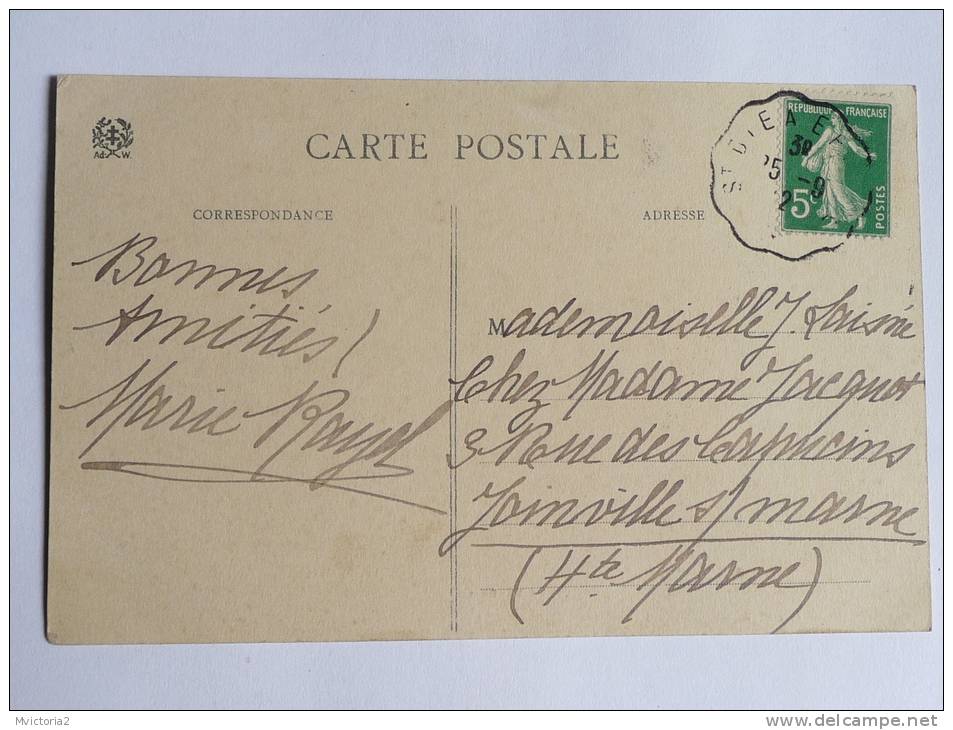 Ad. W.
CARTE POSTALE
CORRESPONDANCE
ADRESSE
ST DIE A
30
25 -9
RÉPUBLIQUE FRANÇAISE
5c
POSTES
Bonnes
Amitiés
Marie
Mademoiselle J. Laisné
Chez Madame Jacquot
Rue des Capucins
Joinville s/ marne
(Hte Marne)
Mvictoria2
www.delcampe.net